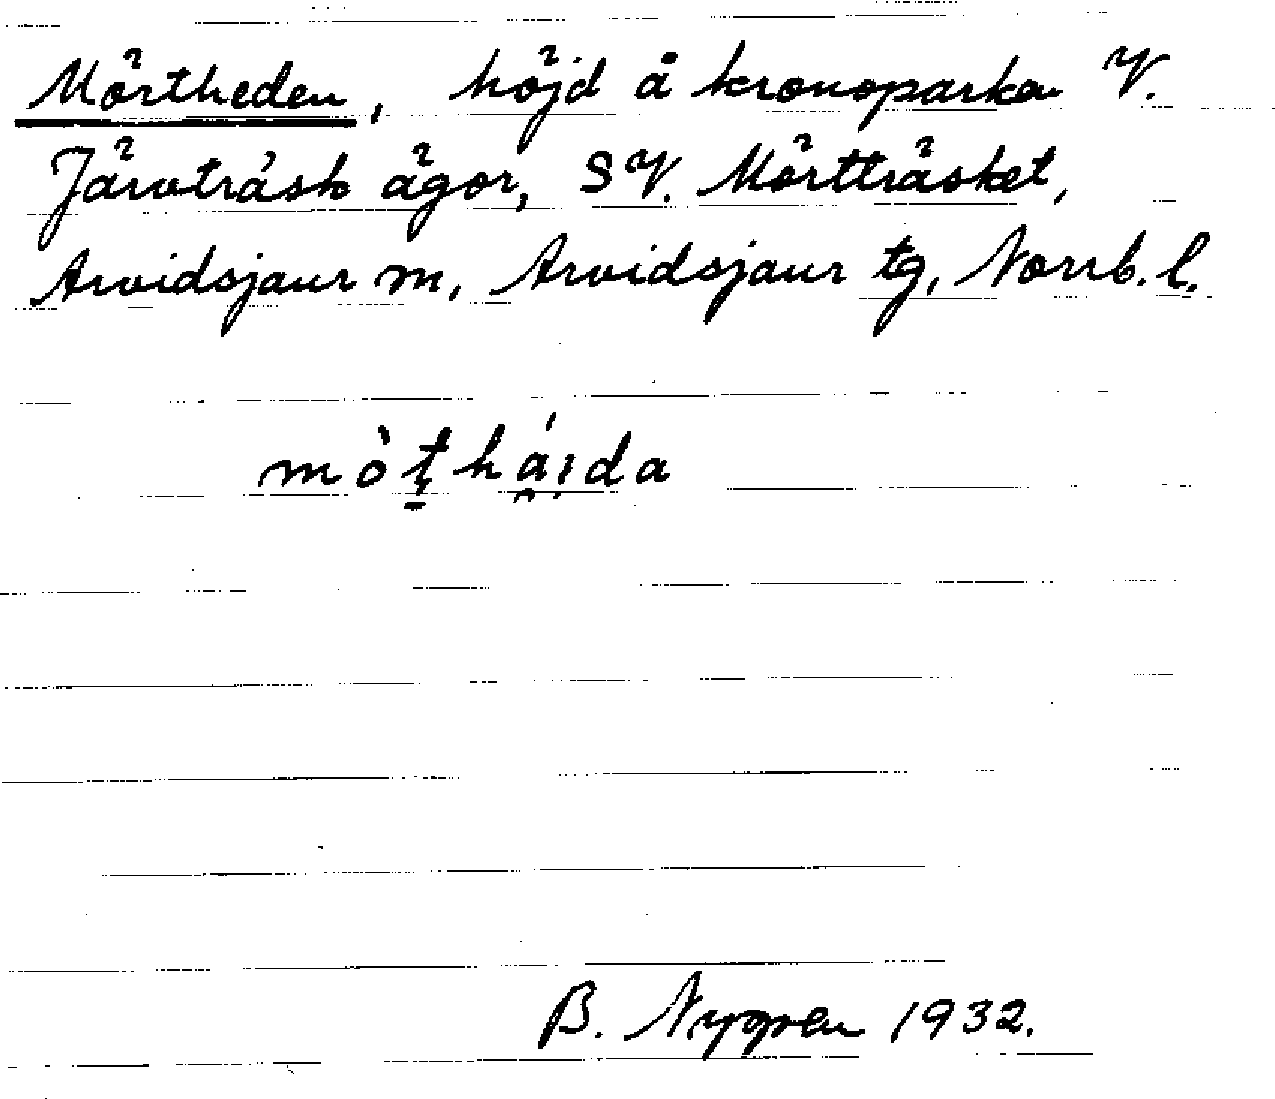 Mörtheden, höjd å kronoparken V.
Järvträsk ägor, SV. Mörtträsket,
Arvidsjaur m, Arvidsjaur tg, Norrb. l.
mòt̠háıda
B. Nygren 1932.